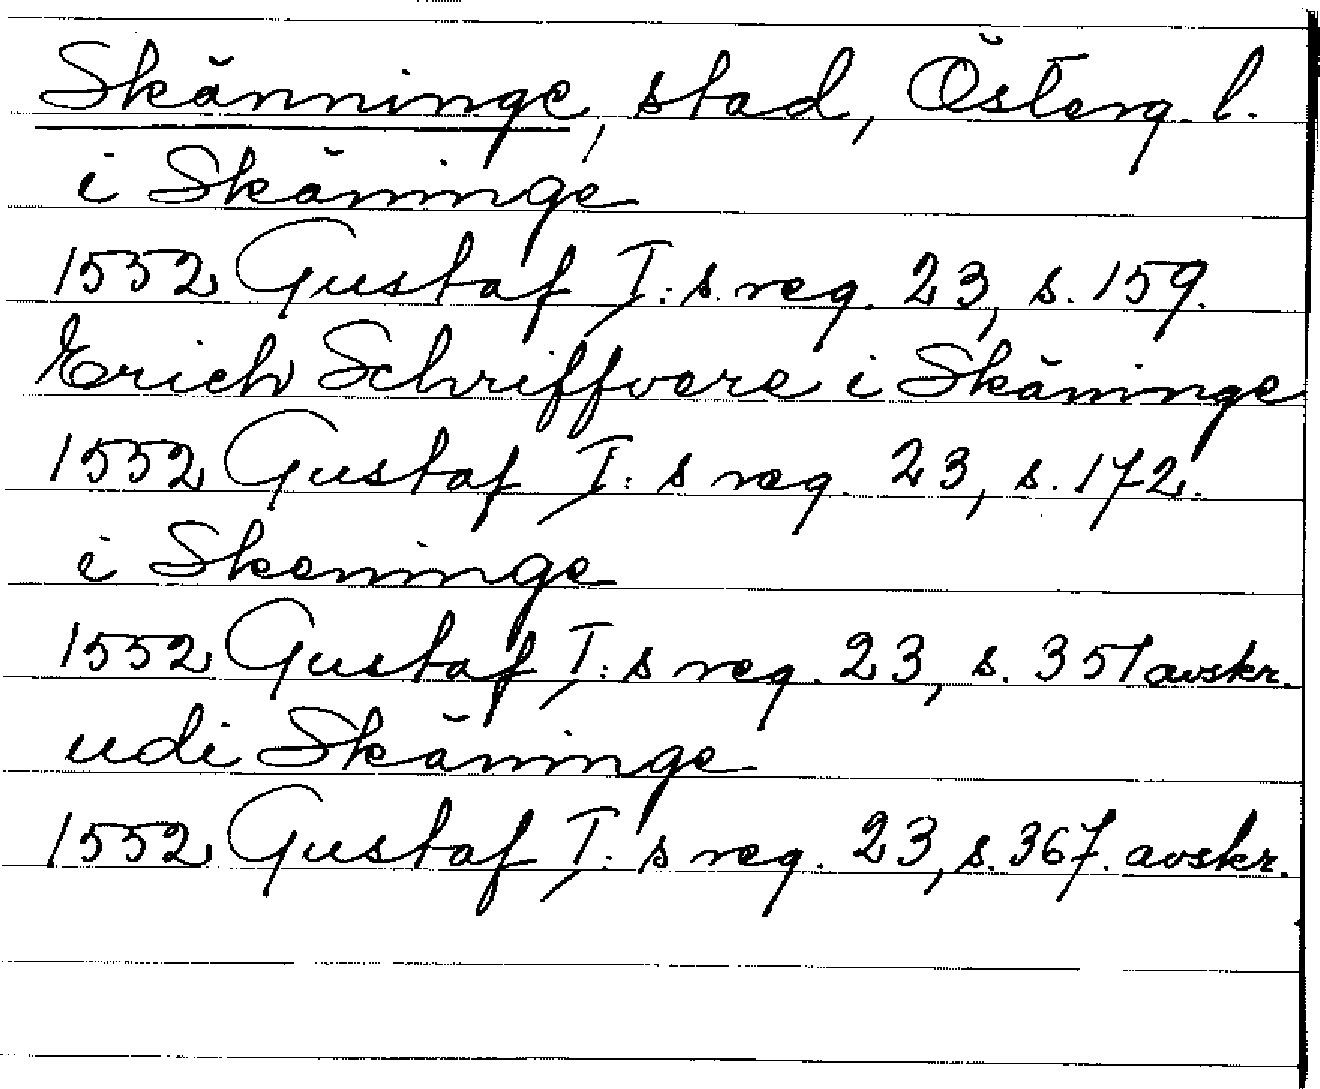 Skänninge, stad, Österg. l.
i Skäninge
1552 Gustaf I:s reg. 23, s. 159.
Erich Schriffvere i Skäninge
1552 Gustaf I:s reg. 23, s. 172.
i Skeninge
1552 Gustaf I:s reg. 23, s. 351 avskr.
udi Skäninge
1552 Gustaf I:s reg. 23, s. 367. avskr.